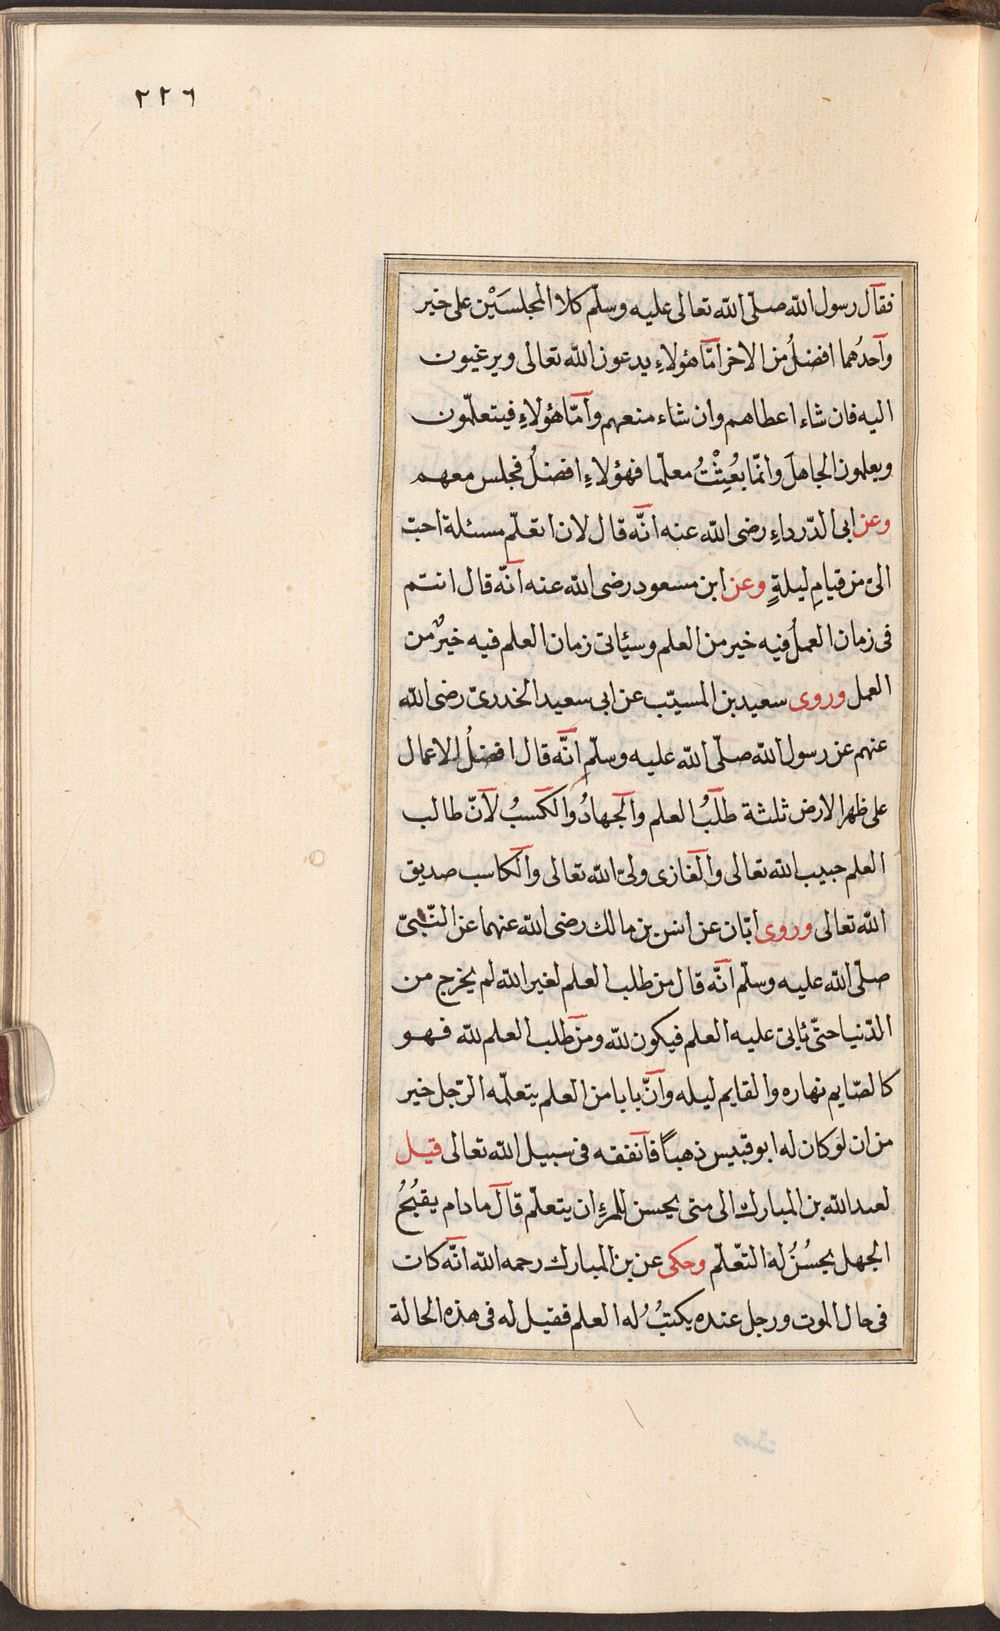 ٢٢٦
فقال رسول الله صلّى الله تعالى عليه وسلّم كلا المجلسَيْن على خير
وآحدُهما افضلُ من الاخر امّا هؤلاءِ يدعون الله تعالى ويرغبون
اليه فان شاء اعطاهم وان شاء منعهم وامّا هؤلاءِ فيتعلّمون
ويعلمون الجاهلَ وانّما بُعِثْتُ معلّما فهؤلاءِ افضلُ فجلس معهم
وعن ابى الدّرداءِ رضى الله عنه انّه قال لان اتعلّم مسئلة احبّ
الىّ من قيامِ ليلةٍ وعن ابن مسعود رضى الله عنه انّه قال انتم
فى زمان العملُ فيه خير من العلم وسئَاتى زمان العلم فيه خيرٌ من
العمل وروى سعيد بن المسيّب عن ابى سعيد الخدرىّ رضى الله
عنهم عن رسول الله صلّى الله عليه وسلّم انّه قال افضلُ الاعمال
على ظهر الارض ثلثة طلبُ العلم والجهادُ والكسبُ لانّ طالب
العلم حبيب الله تعالى والغازى ولىّ الله تعالى والكاسب صديق
الله تعالى وروى ابّان عن انس بن مالك رضى الله عنهما عن النّبىّ
صلّى الله عليه وسلّم انّه قال من طلب العلم لغير الله لم يخرج من
الدّنيا حتّى ئَاتى عليه العلم فيكون لله ومن طلب العلم لله فهو
كالصّايم نهاره والقايم ليله وانّ بابا من العلم يتعلّمه الرّجل خير
من ان لو كان له ابو قبيس ذهبًا فانفقه فى سبيل الله تعالى قيل
لعبد الله بن المبارك الى متى يحسن للمرءِ ان يتعلّم قال ما دام يقبُحُ
الجهل يحسُنُ له التّعلّم وحكى عن بن المبارك رحمه الله انّه كان
فى حال الموت ورجل عنده يكتبُ له العلم فقيل له فى هذه الحالة